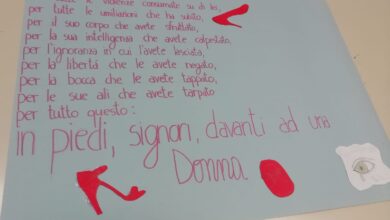 le violenze consumate su di lei,
per tutte le umiliazioni che ha subito,
per il suo corpo che avete sfruttato,
per la sua intelligenza che avete calpestato,
per l'ignoranza in cui l'avete lasciata,
per la libertà che le avete negato,
per la bocca che le avete tappato,
per le sue ali che avete tarpato
per tutto questo:
in piedi, signori, davanti ad una
Donna